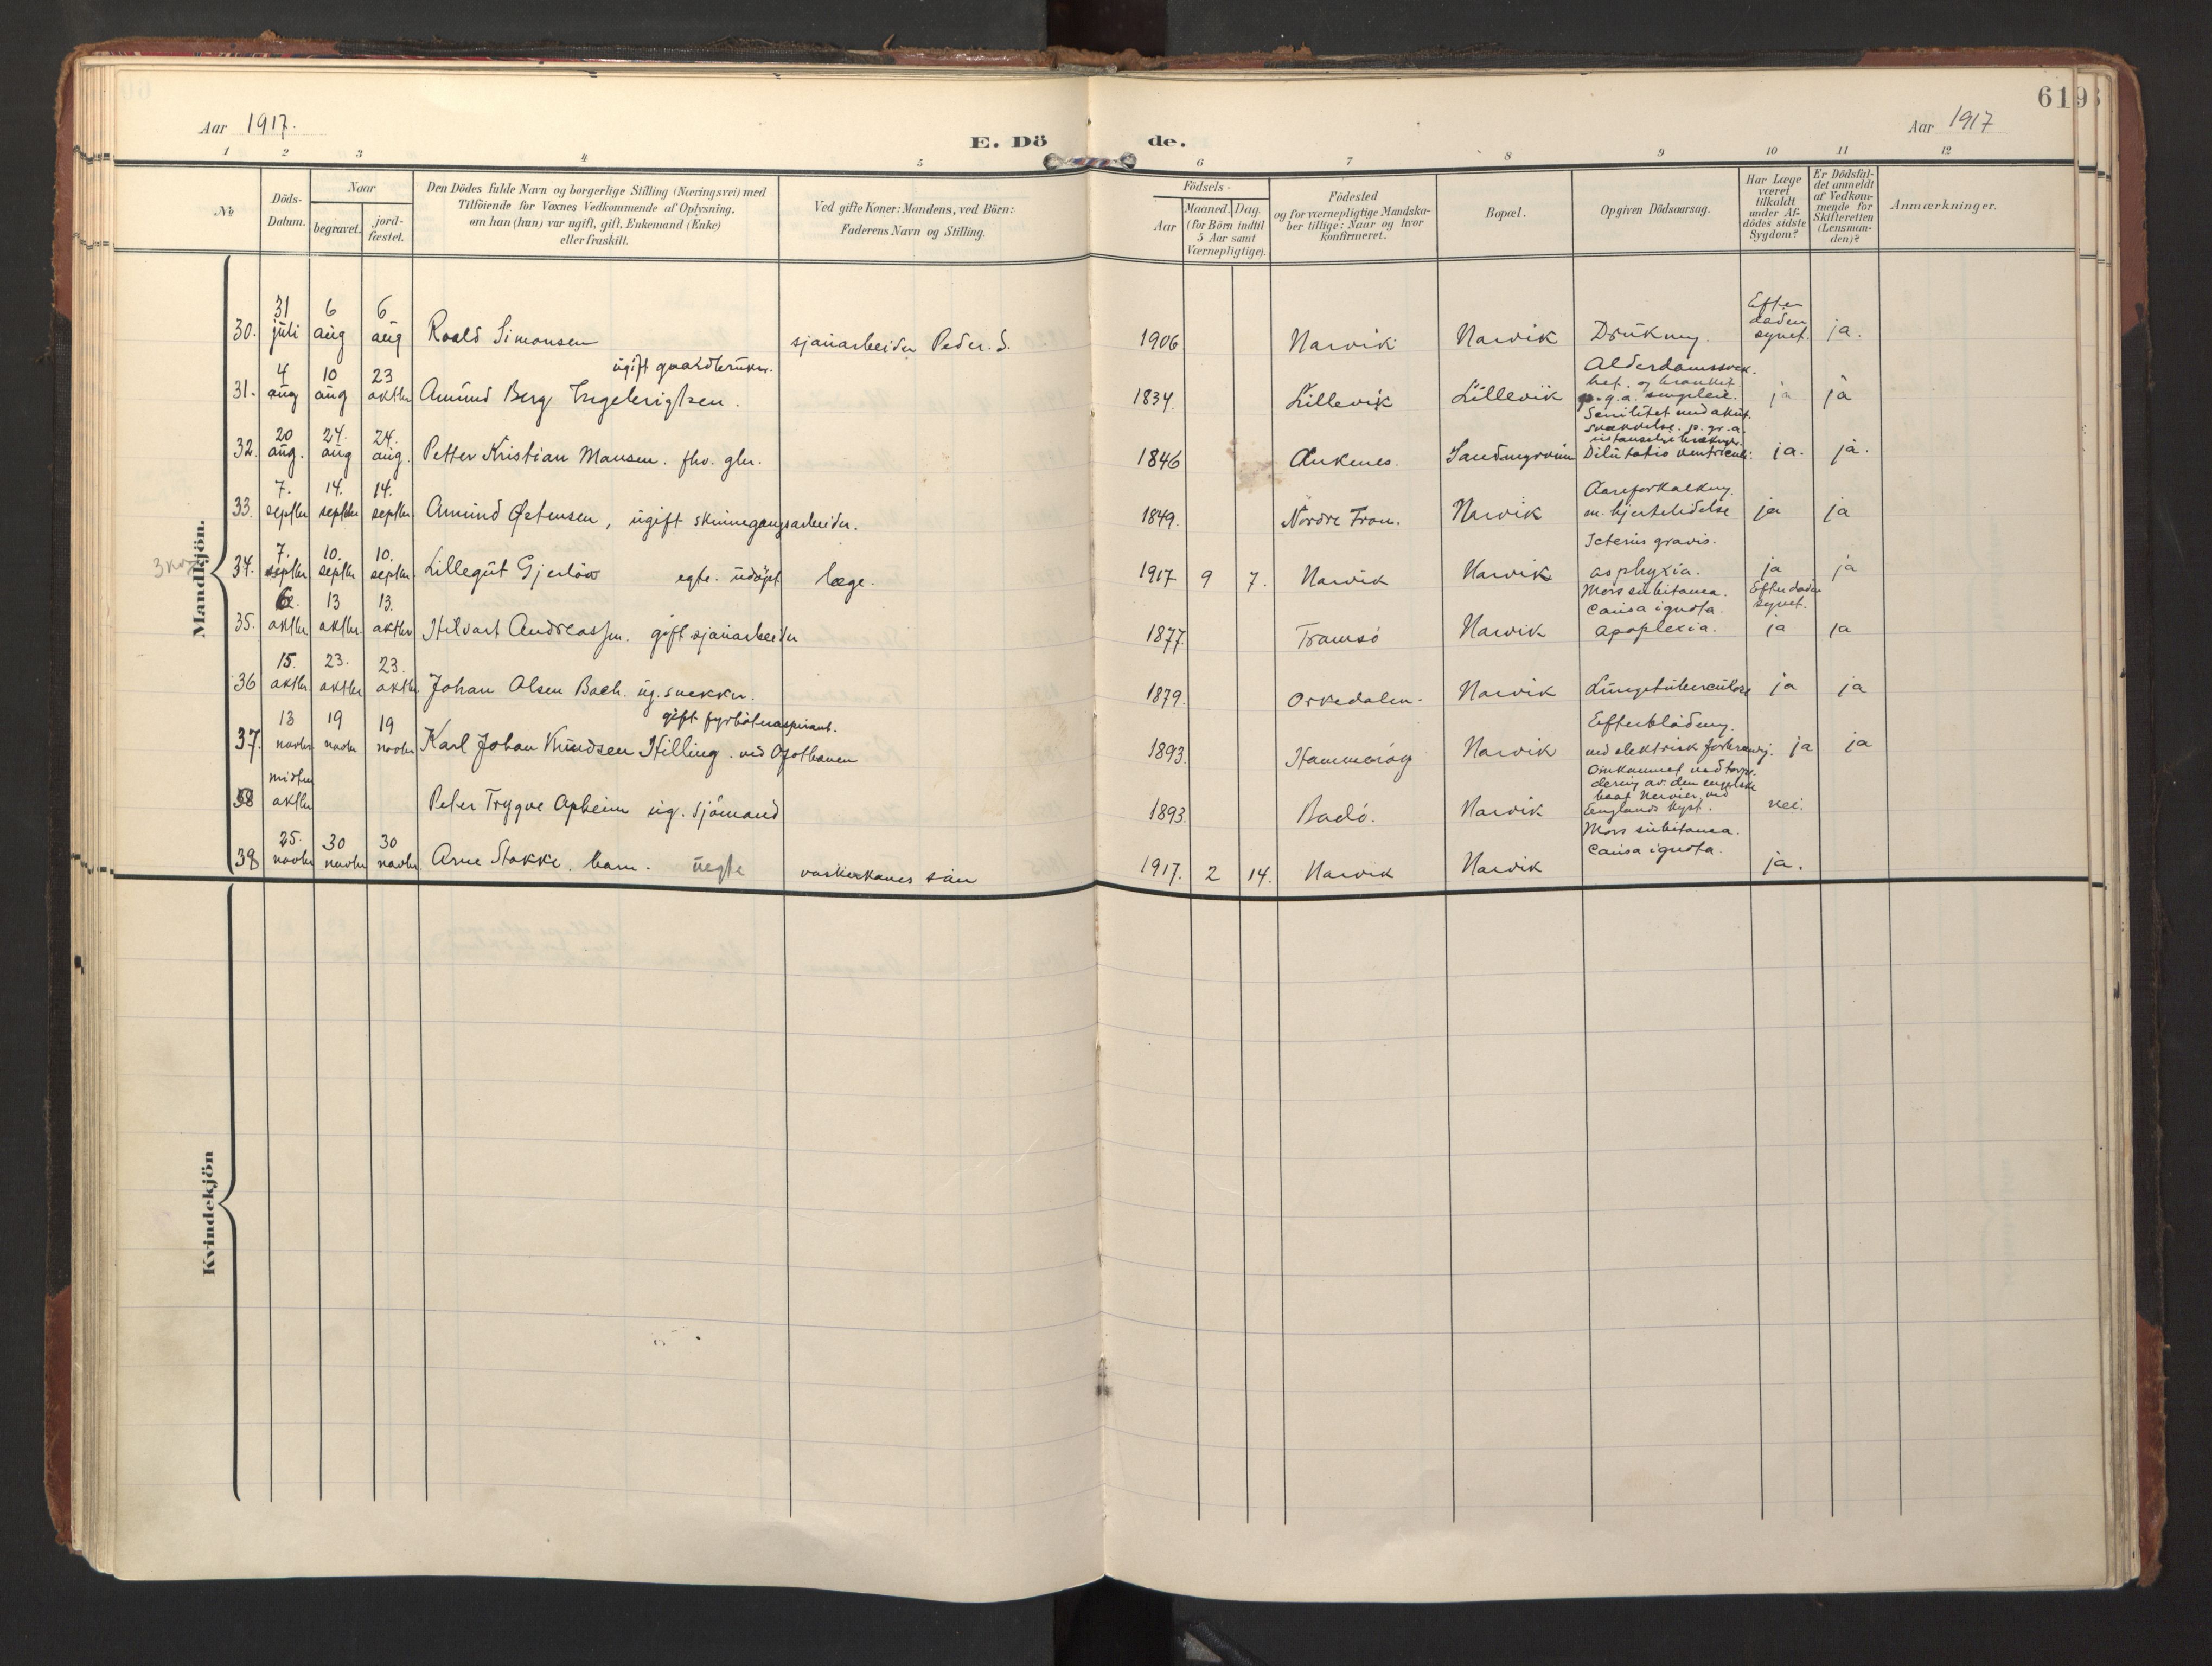 619
Aar 1917.
E. Dö de.
Aar 1917
1 2 3 4 5 6 7 8 9 10 11 12
№
Döds-
Datum.
Naar
begravet.
jord-
fæstet.
Den Dödes fulde Navn og borgerlige Stilling (Næringsvei) med
Tilföiende for Voxnes Vedkommende af Oplysning,
om han (hun) var ugift, gift, Enkemand (Enke)
eller fraskilt.
Ved gifte Koner: Mandens, ved Börn:
Faderens Navn og Stilling.
Födsels-
Aar
Maaned. Dag.
(for Börn indtil
5 Aar samt
Værnepligtige).
Födested
og for værnepligtige Mandska-
ber tillige: Naar og hvor
konfirmeret.
Bopæl.
Opgiven Dödsaarsag.
Har Læge
været
tilkaldt
under Af-
dödes sidste
Sygdom?
Er Dödsfal-
det anmeldt
af Vedkom-
mende for
Skifteretten
(Lensman-
den)?
Anmærkninger.
Mandkjön.
30. 31 juli 6 aug 6 aug Roald Simonsen sjauarbeider Peder. S. 1906 Narvik Narvik Drukning. Efter døden synet. ja.
ugift gaardbruker.
31. 4 aug 10 aug 23 oktbr Amund Berg Ingebrigtsen. 1834. Lillevik Lillevik Alderdomssvek. het. og p.g.a. ja ja
32. 20 aug. 24. aug 24. aug. Petter Kristian Hansen. fhv. gbr. 1846 Ankenes. Senilitet med akut. svækkelse. p. gr. a. Dilutatio ventriculi. ja. ja.
33. 7. septbr 14. septbr 14. septbr. Amund Østensen, ugift skinnegangsarbeider. 1849. Nordre Fron. Narvik Aareforkalkning. m. hjertelidelse ja ja
34. 7. septbr 10. septbr 10. septbr. Lillegut Gjerløw egte. udøpt læge. 1917 9 7. Narvik Narvik Icterus gravis. asphyxia. ja ja
35. 6. oktbr. 13 oktbr. 13. oktbr Hilvart Andreassen. gift sjauarbeider 1877. Tromsö Narvik Mors subitanea. Causa ignota. apoplexia. Efter døden synet. ja ja
36 15. oktbr. 23. oktbr 23. oktbr. Johan Olsen Bach. ug. snekker. 1879. Orkedalen. Narvik Lungetuberculose ja ja
gift fyrbøteraspirant.
37. 13 novbr. 19 novbr 19 novbr Karl Johan Knudsen Hilling. ved Ofotbanen 1893. Hammerøy Narvik Efterblødning. ved elektrisk forbrænding. ja ja
38 midten oktbr Peter Trygve Apheim ug. sjömand 1893. Bodø. Narvik Omkommet ved torpe. dering av. den engelske baat ved Englands kyst. nei.
39 25. novbr 30 novbr 30 novbr. Arne Stokke. barn. uegte vaskekones søn 1917. 2 14. Narvik Narvik Mors subitanea. Causa ignota. ja.
Kvindekjön